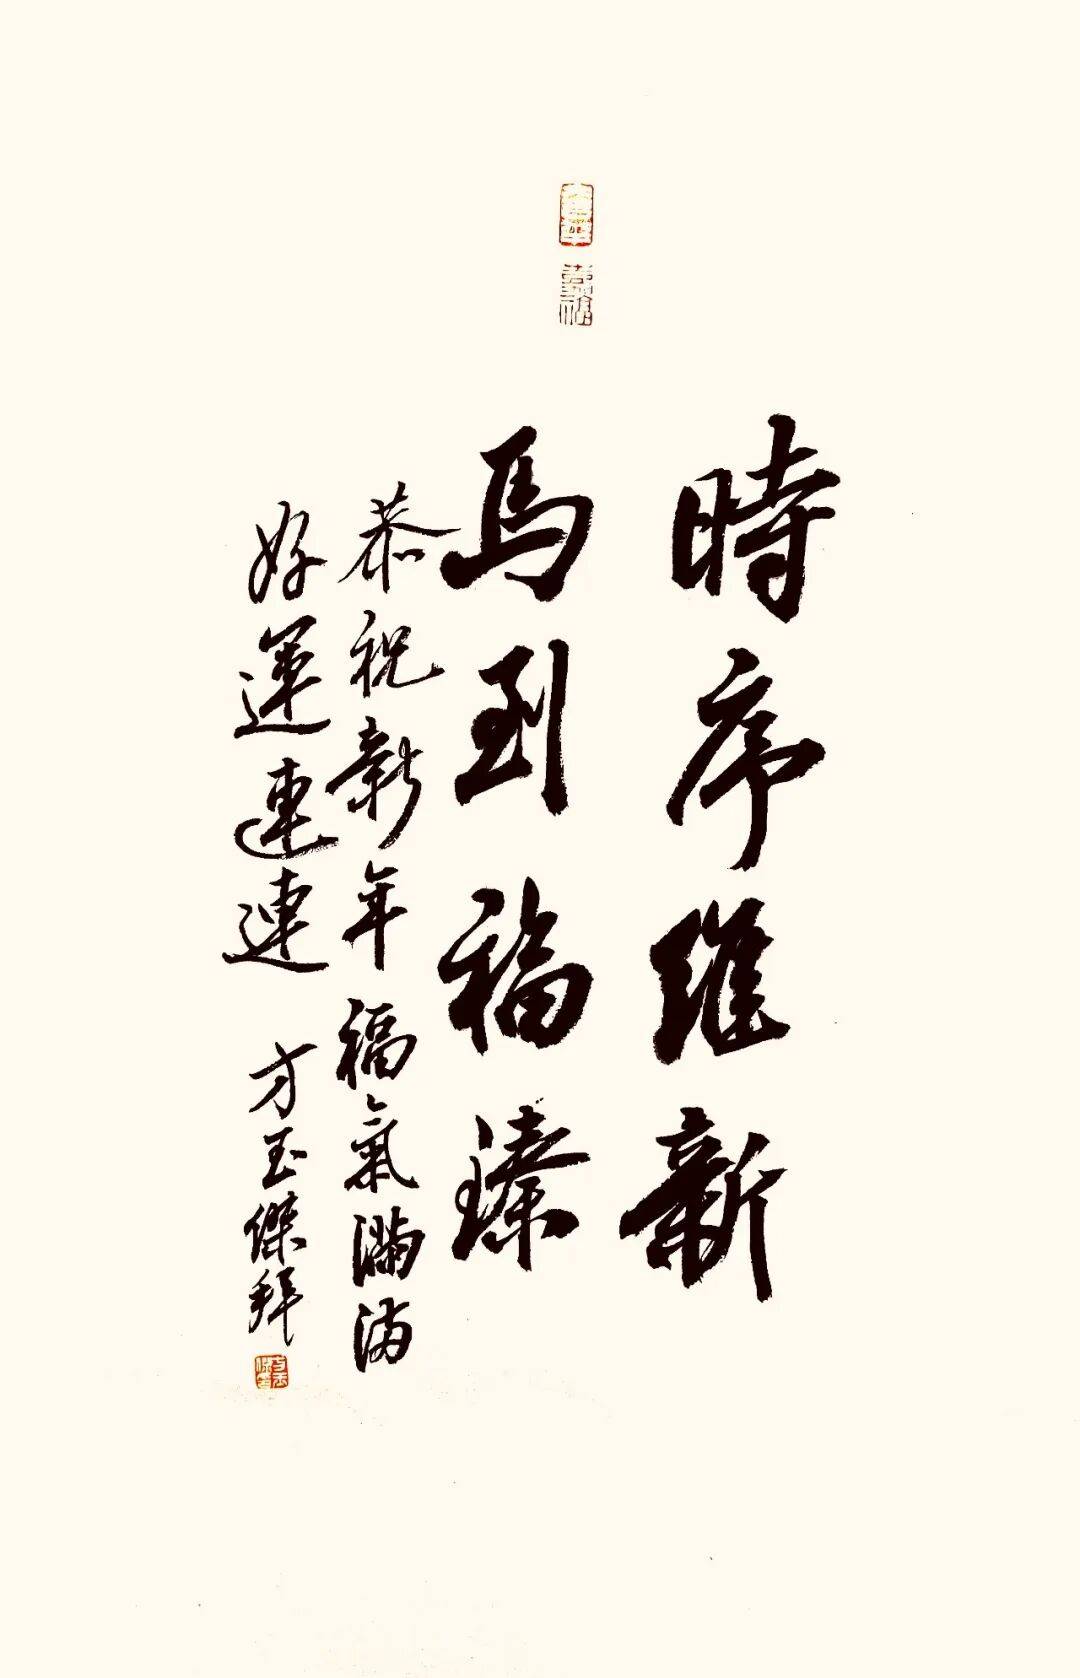 時序維新
馬到福臻
恭祝新年福氣滿滿
好運連連 方玉傑拜